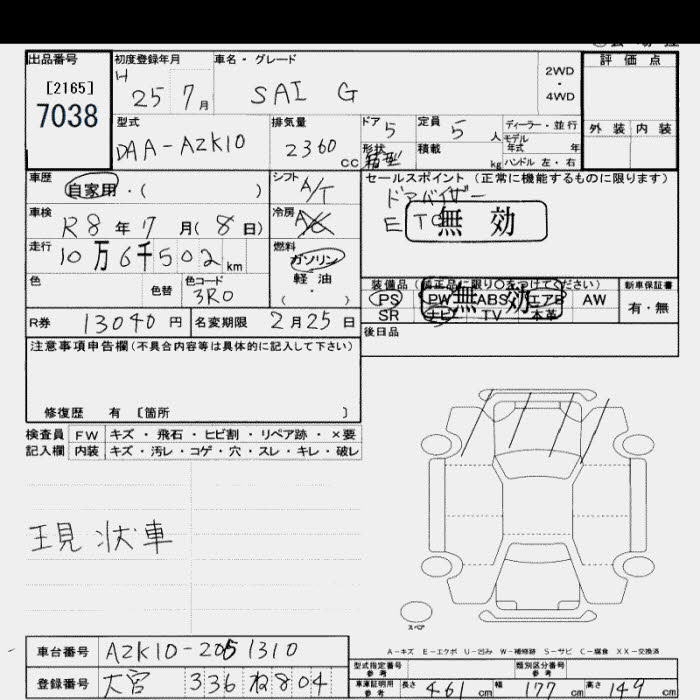 出品番号
[2165]
7038
初度登録年月
H 25 7月
車名・グレード
SAI G
2WD
・
4WD
評価点
外装 内装
型式
DAA-AZK10
排気量
2360 CC
ドア 5
定員 5 人
形状 箱型
積載 kg
ディーラー・並行
モデル年式 年
ハンドル 左・右
車歴
自家用・( )
シフト A/T
車検
R8年7月(8日)
冷房 AC
走行
10万6千502km
燃料
ガソリン
軽油
( ・ )
色
色替
色コード
3R0
R券 13040円
名変期限 2月25日
セールスポイント (正常に機能するものに限ります)
ドアバイザー
ETC
無効
装備品(純正品に限り○をつけてください)
PS PW ABS エアB AW
SR ナビ TV 本革
無効
新車保証書
有・無
後日品
注意事項申告欄(不具合内容等は具体的に記入して下さい)
修復歴 有 [箇所 ]
検査員 FW キズ・飛石・ヒビ割・リペア跡・×要
記入欄 内装 キズ・汚レ・コゲ・穴・スレ・キレ・破レ
現状車
スペア
A-キズ E-エクボ U-凹み W-補修跡 S-サビ C-腐食 XX-交換済
車台番号 AZK10-2051310
登録番号 大宮 336 ね 804
型式指定番号 参考
類別区分番号 参考
車庫証明用 参考 長さ 461 cm 幅 177 cm 高さ 149 cm